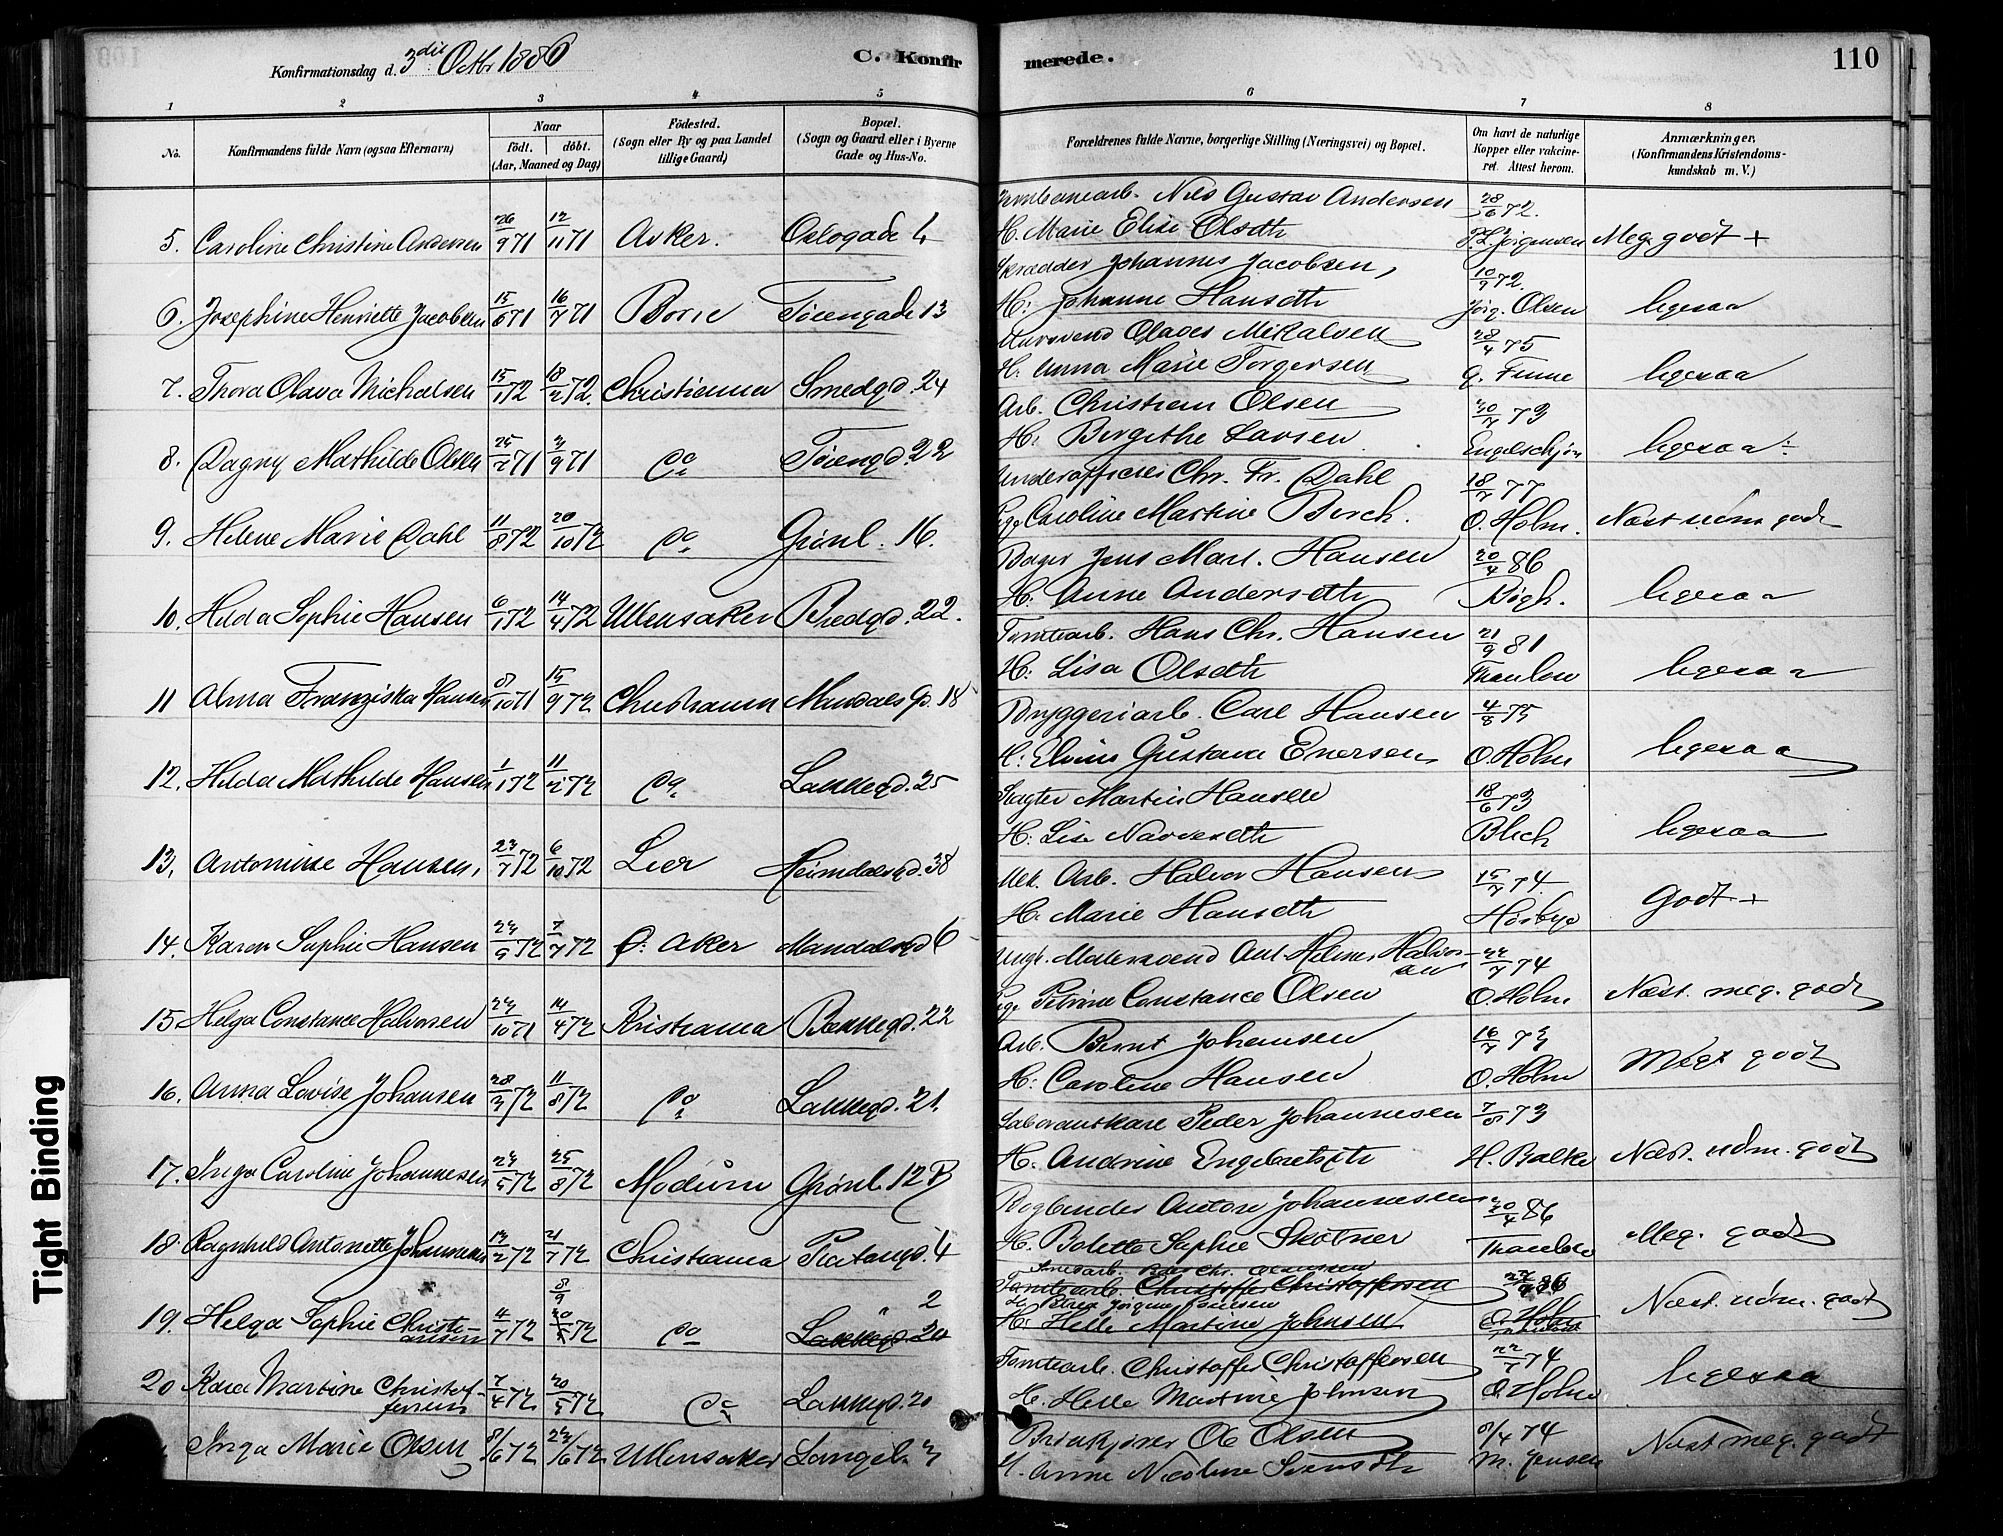 Konfirmationsdag d. 3die Octbr 1886
C. Konfir merede.
110
1 2 3 4 5 6 7 8
No.
Konfirmandens fulde Navn (ogsaa Efternavn)
Naar
Födt. döbt.
(Aar, Maaned og Dag)
Födested.
(Sogn eller By og paa Landet
tillige Gaard)
Bopæl.
(Sogn og Gaard eller i Byerne
Gade og Hus-No.
Forældrenes fulde Navne, borgerlige Stilling (Næringsvei) og Bopæl.
Om havt de naturlige
Kopper eller vakcine-
ret. Attest herom.
Anmærkninger,
(Konfirmandens Kristendoms-
kundskab m. V.)
Nils Gustav Andersen 28/6 72.
5. Caroline Christine Andersen 26/9 71 12/11 71 Asker. Oslogade 4 H. Marie Elise Olsdtr P.L. Jørgensen Meg. godt +
Skrædder Johannes Jacobsen, 10/9 72.
6. Josephine Henriette Jacobsen 15/6 71 16/7 71 Borre Töiengade 13 H: Johanne Hansdtr Jørg. Olsen ligesaa
Olaves Mikalsen 28/4 75
7. Thora Olava Michalsen 15/1 72 18/2 72. Christiania Smedgd. 24 H: Anna Marie Torgersen G. Finne ligesaa
Arb. Christian Olsen 30/7 73
8. Dagny Mathilde Olsen 25/2 71 3/9 71 Do Töiengd. 22 H: Birgithe Larsen Engelschjön ligesaa
Underofficer Chr. Fr. Dahl 18/7 77
9. Helene Marie Dahl 11/8 72 20/10 72 Do Grönl. 16. Pige Caroline Martine Birch. O. Holm. Næst udm. godt
Bager Jens Mart. Hansen 20/4 86
10. Hilda Sophie Hansen 6/1 72 14/4 72 Ullensaker Bredgd. 22. H: Anne Andersdtr Bögh. ligesaa
Tomtearb. Hans Chr. Hansen 21/9 81
11 Alma Franziska Hansen 8/10 71 15/9 72 Christiania Mandals Gd. 18 H: Lisa Olsdtr Thaulow ligesaa
Bryggeriarb. Carl Hansen 4/8 75
12. Hilda Mathilde Hansen 1/1 72 11/2 72 Do Lakkegd. 25 H: Elvine Gustava Enersen O. Holm ligesaa
Slagter Martin Hansen 18/6 73
13. Antonisse Hansen, 23/7 72 6/10 72 Lier Heimdalsgd. 38 H: Lise Narvesdtr Blich ligesaa
Mek. Arb. Halvor Hansen 15/7 74
14. Karen Sophie Hansen 23/5 72 7/7 72 Ö: Aker Mandalsgd 6 H: Marie Hansdtr Hörbye Godt +
Ungk. Malersvend Ant. Helmer Halvor-
sen 22/7 74
15 Helga Constance Halvorsen 23/10 71 14/4 72 Kristiania Bakkegd. 22 Pige Petrine Constance Olsen O. Holm Næst. meg. godt
Arb. Bernt Johansen 16/7 73
16. Anna Lovise Johansen 28/3 72 11/8 72 Do Lakkegd. 21. H: Caroline Hansen O. Holm Meget godt
Peder Johannesen 7/8 73
17. Inga Caroline Johannesen 23/5 72 25/8 72 Modum Grönl. 12 B H. Andrine Engebretsdtr H. Balke Næst. udm. godt
Bogbinder Anton Johannesen 30/4 86
18. Ragnhild Antonette Johannesen 13/2 72 21/7 72 Christiania Platougd. 4 H. Bolette Sophie Skötner Thaulow Meg. godt
Tomtearb. Christoffer Christoffersen
19. Helga Sophie Christi-
ansen 4/7 72 8/9 20/5 72 Do Lakkegd 20 2 H: Helle Martine Johnsen O. Holm Næst. udm. godt
Tomtearb. Christoffer Christoffersen 22/7 74
20 Kaia Martine Christof-
fersen 7/4 72 20/5 72 Do Lakkegd. 20 H. Helle Martine Johnsen O. Holm ligesaa
Ole Olsen 8/4 74
Inga Marie Olsen 8/6 72 23/6 72 Ullensaker Langel. 3 H. Anne Nicoline Svensdtr M. Jensen Næst meg. godt
Tight Binding